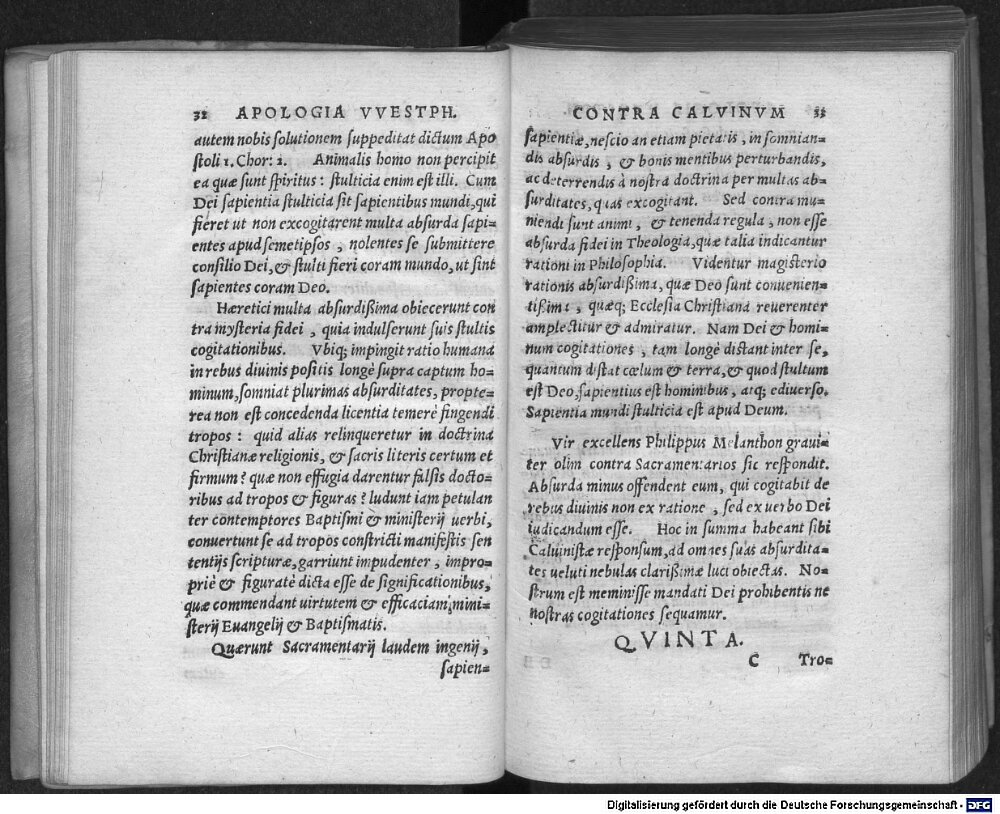 32 APOLOGIA VVESTPH.
autem nobis solutionem suppeditat dictum Apo
stoli 1. Chor: 2. Animalis homo non percipit
ea quæ sunt spiritus: stulticia enim est illi. Cum
Dei sapientia stulticia sit sapientibus mundi, qui
fieret ut non excogitarent multa absurda sapi-
entes apud semetipsos, nolentes se submittere
consilio Dei, & stulti fieri coram mundo, ut sint
sapientes coram Deo.
Hæretici multa absurdißima obiecerunt con
tra mysteria fidei, quia indulserunt suis stultis
cogitationibus. Vbiq; impingit ratio humana
in rebus diuinis positis longè supra captum ho-
minum, somniat plurimas absurditates, propte-
rea non est concedenda licentia temerè fingendi
tropos: quid alias relinqueretur in doctrina
Christianæ religionis, & sacris literis certum et
firmum? quæ non effugia darentur falsis docto-
ribus ad tropos & figuras? ludunt iam petulan
ter contemptores Baptismi & ministerij uerbi,
conuertunt se ad tropos constricti manifestis sen
tentijs scripturæ, garriunt impudenter, impro-
priè & figuratè dicta esse de significationibus,
quæ commendant uirtutem & efficaciam mini-
sterij Euangelij & Baptismatis.
Quærunt Sacramentarij laudem ingenij,
sapien-
CONTRA CALVINVM 33
sapientiæ, nescio an etiam pietatis, in somnian-
dis absurdis, & bonis mentibus perturbandis,
ac deterrendis à nostra doctrina per multas ab-
surditates, quas excogitant. Sed contra mu-
niendi sunt animi, & tenenda regula, non esse
absurda fidei in Theologia, quæ talia indicantur
rationi in Philosophia. Videntur magisterio
rationis absurdißima, quæ Deo sunt conuenien-
tißima, quæq; Ecclesia Christiana reuerenter
amplectitur & admiratur. Nam Dei & homi-
num cogitationes, tam longè distant inter se,
quantum distat cœlum & terra, & quod stultum
est Deo, sapientius est hominibus, atq; ediuerso.
Sapientia mundi stulticia est apud Deum.
Vir excellens Philippus Melanthon graui-
ter olim contra Sacramentarios sic respondit.
Absurda minus offendent eum, qui cogitabit de
rebus diuinis non ex ratione, sed ex uerbo Dei
iudicandum esse. Hoc in summa habeant sibi
Caluinistæ responsum, ad omnes suas absurdita-
tes ueluti nebulas clarißimæ luci obiectas. No-
strum est meminisse mandati Dei prohibentis ne
nostras cogitationes sequamur.
QVINTA.
C Tro-
Digitalisierung gefördert durch die Deutsche Forschungsgemeinschaft - DFG